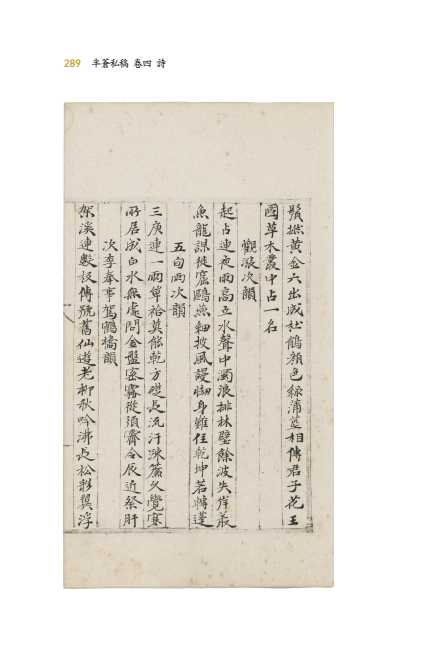 289 半蒼私稿 卷四 詩
黃金六出成 鶴頂色綠蒲莖相傳君子花王
國草木叢中占一名
觀漲次韻
起占連夜雨高立水聲中濁浪排林壁餘波失岸叢
魚龍謀徙窟鷗燕細披風謾 身難任乾坤若轉蓬
五旬雨次韻
三庚連一雨 裕莫能乾方礎長流汗 簾久覺寒
所居成白水無處問金盤密霧從須霽令辰近祭肝
次李奉事駕鶴橋韻
架溪連數板傳號舊仙遊老柳秋吟沸長松影翼浮